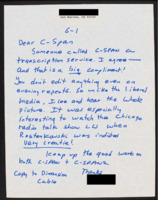 6-1
Dear C-Span
Someone called C-SPAN an
transcription service. I agree —
And that is a big compliment!
You don't edit anything even on
evening repeats. So unlike the liberal
media, I see and hear the whole
picture. It was especially
interesting to watch the Chicago
radio talk show live when
Rostenkowski was indicted
Very creative!
Keep up the good work on
both C-SPAN + C-SPAN 2.
Thanks
Copy to Dimension
Cable